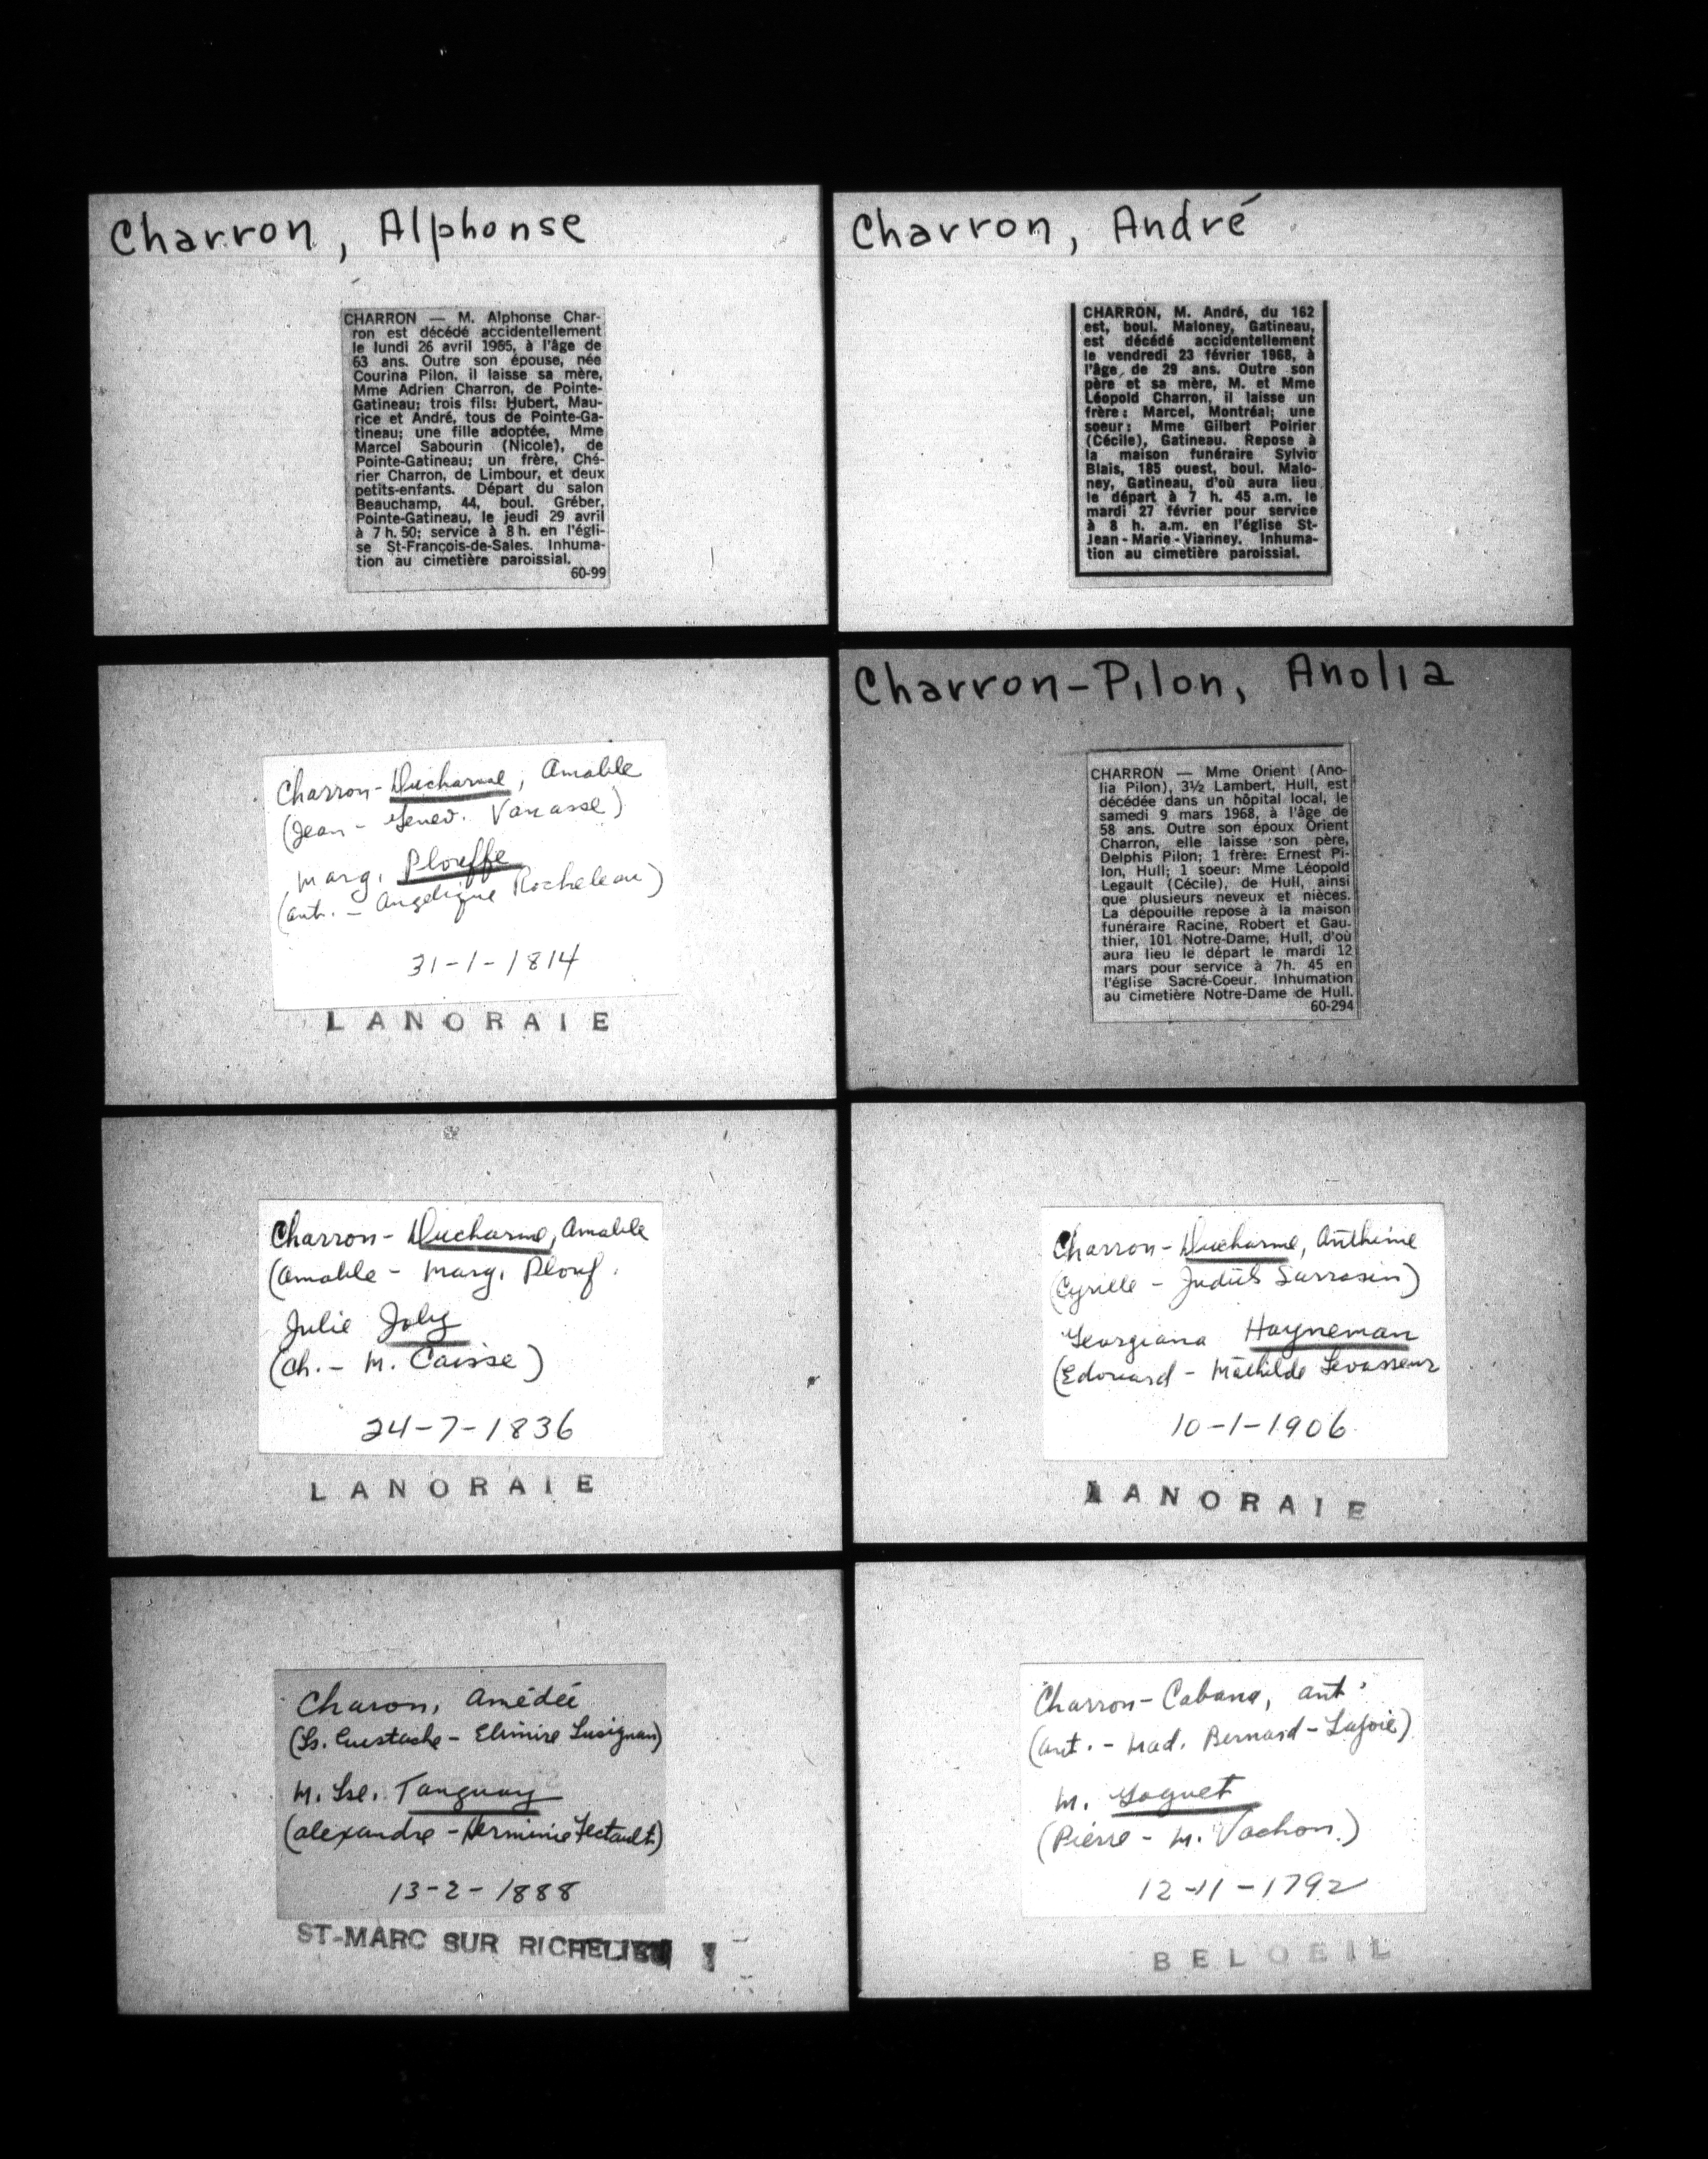 Charron, Alphonse
CHARRON — M. Alphonse Char-
ron est décédé accidentellement
le lundi 26 avril 1965, à l'âge de
63 ans. Outre son épouse, née
Courina Pilon, il laisse sa mère,
Mme Adrien Charron, de Pointe-
Gatineau; trois fils: Hubert, Mau-
rice et André, tous de Pointe-Ga-
tineau; une fille adoptée, Mme
Marcel Sabourin (Nicole), de
Pointe-Gatineau; un frère, Ché-
rier Charron, de Limbour, et deux
petits-enfants. Départ du salon
Beauchamp, 44, boul. Gréber,
Pointe-Gatineau, le jeudi 29 avril
à 7 h. 50; service à 8 h. en l'égli-
se St-François-de-Sales. Inhuma-
tion au cimetière paroissial.
60-99
Charron, André
CHARRON, M. André, du 162
est, boul. Maloney, Gatineau,
est décédé accidentellement
le vendredi 23 février 1968, à
l'âge de 29 ans. Outre son
père et sa mère, M. et Mme
Léopold Charron, il laisse un
frère: Marcel, Montréal; une
soeur: Mme Gilbert Poirier
(Cécile), Gatineau. Repose à
la maison funéraire Sylvio
Blais, 185 ouest, boul. Malo-
ney, Gatineau, d'où aura lieu
le départ à 7 h. 45 a.m. le
mardi 27 février pour service
à 8 h. a.m. en l'église St-
Jean-Marie-Vianney. Inhuma-
tion au cimetière paroissial.
Charron-Ducharme, Amable
(Jean - Genev. Vanasse)
Marg. Plouffe
(ant. - Angélique Rocheleau)
31-1-1814
LANORAIE
Charron-Pilon, Anolia
CHARRON — Mme Orient (Ano-
lia Pilon), 3½ Lambert, Hull, est
décédée dans un hôpital local, le
samedi 9 mars 1968, à l'âge de
58 ans. Outre son époux Orient
Charron, elle laisse son père,
Delphis Pilon; 1 frère: Ernest Pi-
lon, Hull; 1 soeur: Mme Léopold
Legault (Cécile), de Hull, ainsi
que plusieurs neveux et nièces.
La dépouille repose à la maison
funéraire Racine, Robert et Gau-
thier, 101 Notre-Dame, Hull, d'où
aura lieu le départ le mardi 12
mars pour service à 7h. 45 en
l'église Sacré-Coeur. Inhumation
au cimetière Notre-Dame de Hull.
60-294
Charron-Ducharme, Amable
(Amable - Marg. Plouf.
Julie Joly
(Ch. - M. Caisse)
24-7-1836
LANORAIE
Charron-Ducharme, Anthime
(Cyrille - Judith Sarrasin)
Georgiana Hayneman
(Edouard - Mathilde Levasseur
10-1-1906
LANORAIE
Charon, Amédée
(Ls. Eustache - Elmire Lusignan)
M. Lse. Tanguay
(Alexandre - Herminie Fectault)
13-2-1888
ST-MARC SUR RICHELIEU
Charron-Cabana, ant.
(ant. - Mad. Bernard-Lajoie)
M. Goguet
(Pierre - M. Vachon.)
12-11-1792
BELOEIL